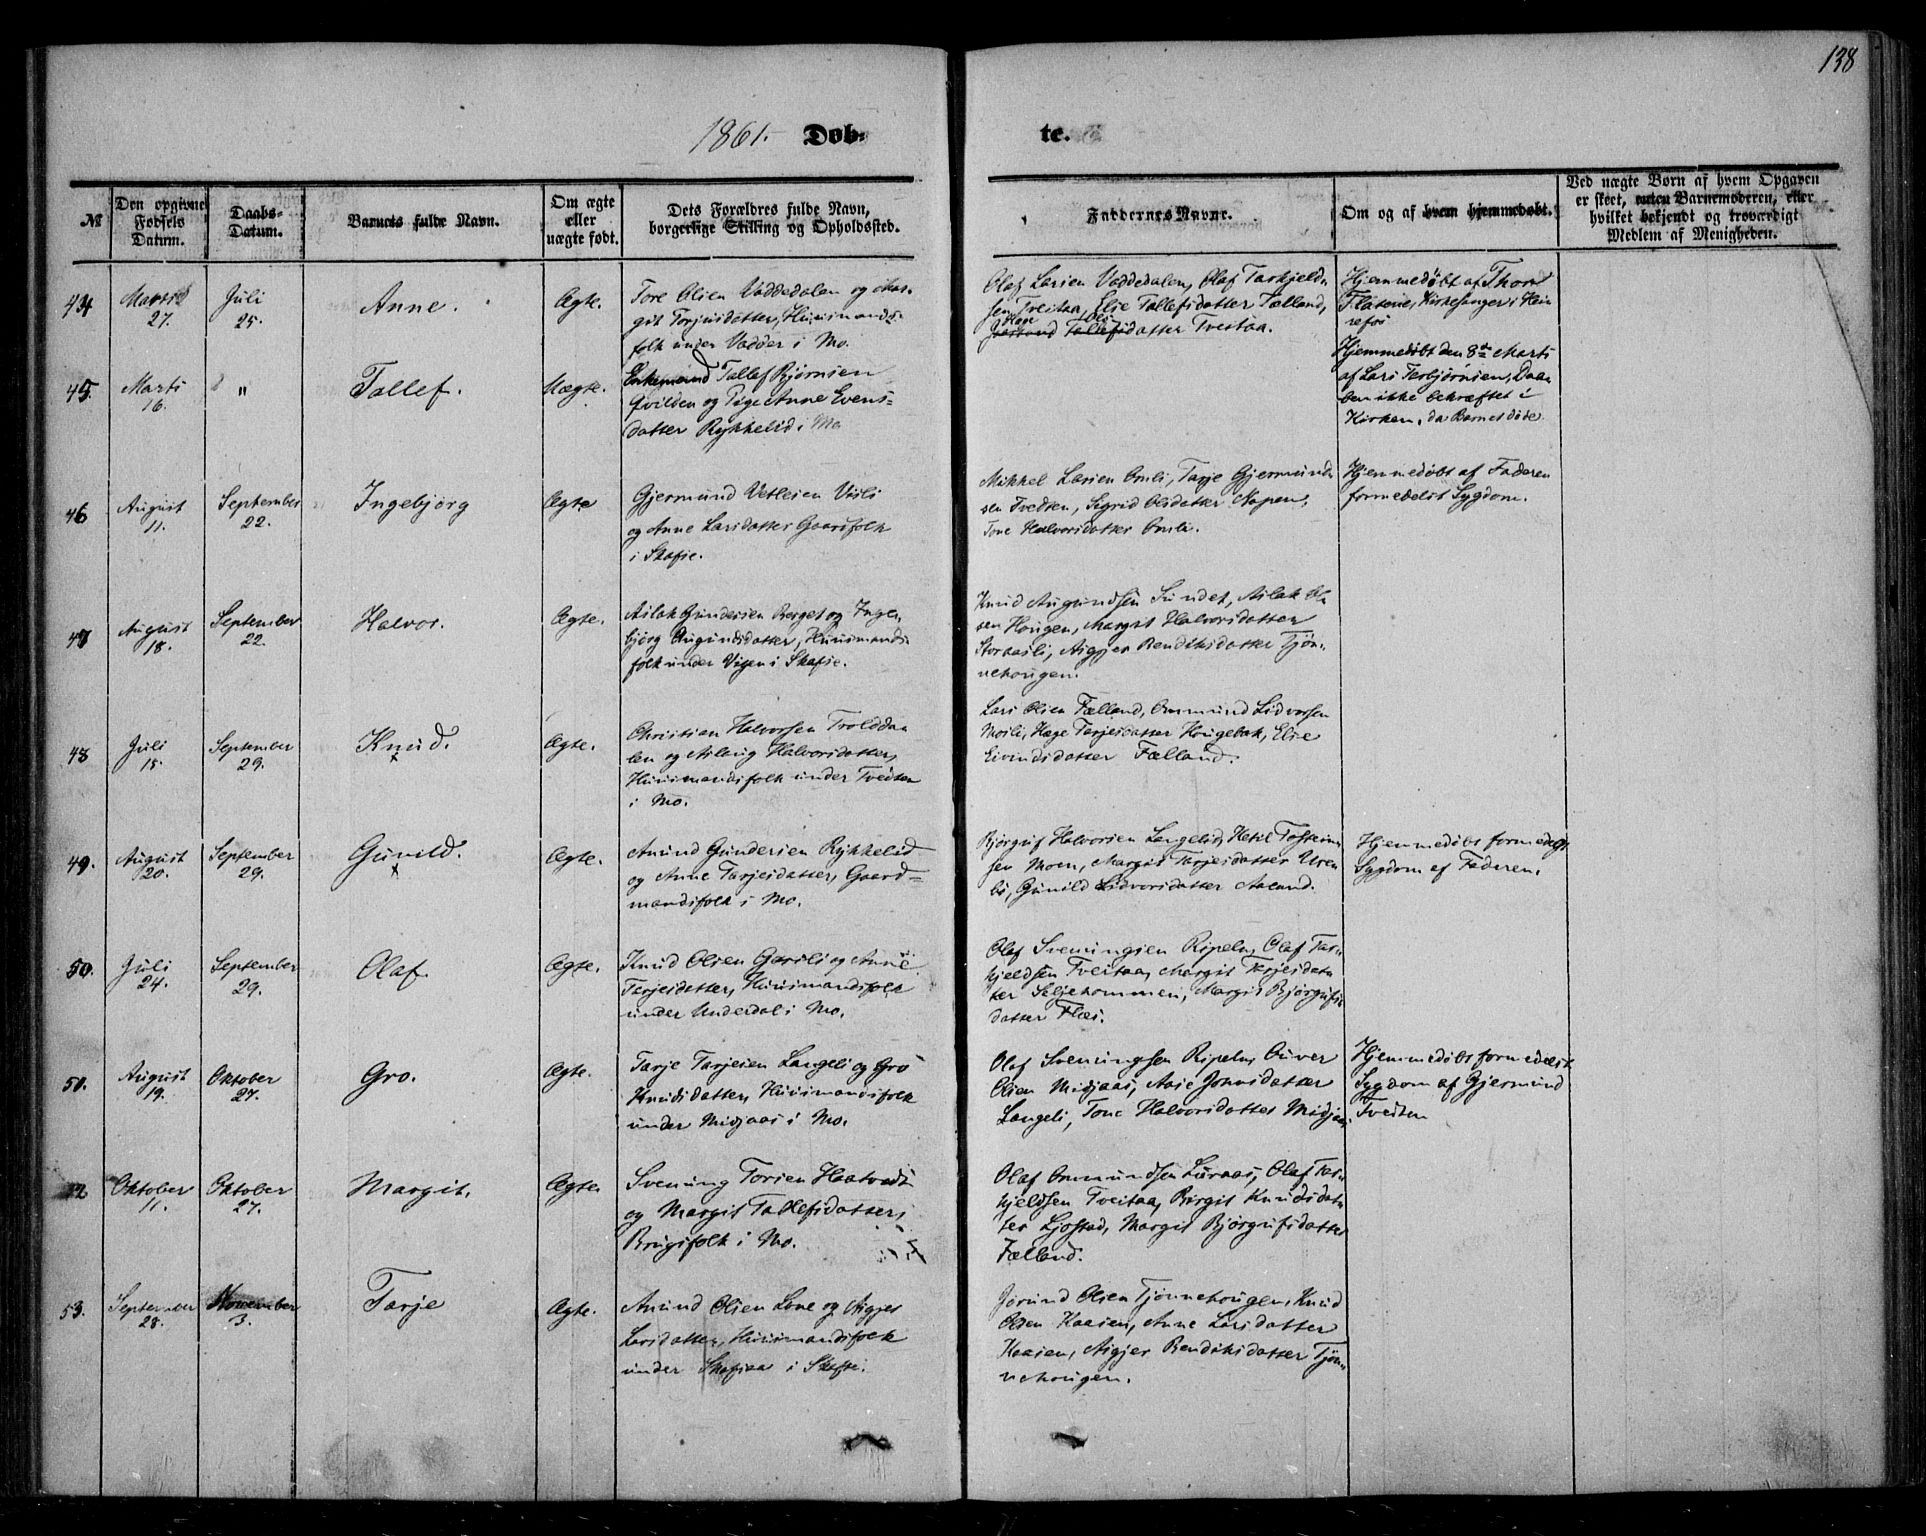 138
1861. Døb-
te.
№
Den opgivne
Fødsels
Datum.
Daabs-
Datum.
Barnets fulde Navn.
Om ægte
eller
uægte født.
Dets Forældres fulde Navn,
borgerlige Stilling og Opholdssted.
Faddernes Navne.
Om og af hvem hjemmedøbt.
Ved uægte Børn af hvem Opgaven
er skeet, enten Barnemoderen, eller
hvilket bekjendt og troværdigt
Medlem af Menigheden.
44
Marts
27.
Juli
25.
Anne.
Ægte.
Tore Olsen Vaddedalen og Mar-
git Torjusdatter, Huusmands-
folk under Vadder i Mo.
Olaf Larsen Vaddedalen, Olaf Tarkjeld-
sen Tveitaa, Elise Tallefsdatter Fælland,
datter Tveitaa.
Hjemmedøbt af Thore
Flaterie, Kirkesanger i Hei-
refos
45.
Marts
16.
"
Tallef.
Uægte.
Enkemand Tallef Bjørnsen
Qvilden og Pige Anne Evens-
datter Rykkelid i Mo
Hjemmedøbt den 8de Marts
af Lars Torbjørnsen, Daa-
ben ikke bekræftet i
Kirken, da Barnet døde
46
August
11.
September
22.
Ingebjørg
Ægte
Gjermund Vetlesen Visli
og Anne Larsdatter Gaardfolk
i Skafse.
Mikkel Larsen Omli, Tarje Gjermund-
sen Tvedten, Sigrid Olsdatter Napen,
Tone Halvorsdatter Omli.
Hjemmedøbt af Faderen
formedelst Sygdom.
47
August
18.
September
22.
Halvor.
Ægte.
Aslak Gundersen Berget og Inge-
bjørg Augundsdatter, Huusmands-
folk under Vigen i Skafse.
Knud Augundsen Sundet, Aslak Ol-
sen Hougen, Margit Halvorsdatter
Storaasli, Aigjer Bendiksdatter Tjøn-
nehougen.
48
Juli
15.
September
29.
Knud.
×
Ægte.
Christian Halvorsen Trolddda-
len og Aslaug Halvorsdatter,
Huusmandsfolk under Tvedten
i Mo.
Lars Olsen Fælland, Ommund Lidvorsen
Mosli, Hæge Tarjesdatter Hougebak, Elie
Eivindsdatter Fælland.
49.
August
20.
September
29.
Gunild.
×
Ægte.
Anund Gundersen Rykkelid
og Anne Tarjesdatter, Gaard-
mandsfolk i Mo.
Bjørguf Halvorsen Langelid, Ketil Tostein-
sen Moen, Margit Tarjesdatter Uren-
bø, Gunild Lidvorsdatter Aaland.
Hjemmedøbt formedelst
Sygdom af Faderen.
50.
Juli
24.
September
29.
Olaf.
Ægte.
Knud Olsen Garsli og Anne
Tarjesdatter, Huusmandsfolk
under Underdal i Mo.
Olaf Sveningsen Ripeln, Olaf Tar-
kjeldsen Tveitaa, Margit Tarjesdat-
ter Seljehommen, Margit Bjørgufs-
datter Flæs.
51.
August
19.
Oktober
27.
Gro.
Ægte.
Tarje Tarjesen Langeli og Gro
Knudsdatter, Huusmandsfolk
under Midjaas i Mo.
Olaf Sveningsen Ripeln, Gunver
Olsen Midjaas, Aase Jonsdatter
Langeli, Tone Halvorsdatter Midjaas.
Hjemmedøbt formedelst
Sygdom af Gjermund
Tvedten
52
Oktober
11.
Oktober
27.
Margit.
Ægte.
Svenung Torsen Haatvedt
og Margit Tallefsdatter,
Brugsfolk i Mo.
Olaf Ommundsen Luraas, Olaf Tar-
kjeldsen Tveitaa, Birgit Knudsdat-
ter Ljosstad, Margit Bjørgufsdatter
Fælland.
53.
September
28.
November
3.
Tarje
Ægte.
Anund Olsen Lone og Aigjer
Larsdatter, Huusmandsfolk
under Skafsaa i Skafse.
Jørund Olsen Tjønnehougen, Knud
Olsen Kaasen, Anne Larsdatter
Kaasen, Aigjer Bendiksdatter Tjøn-
nehougen.